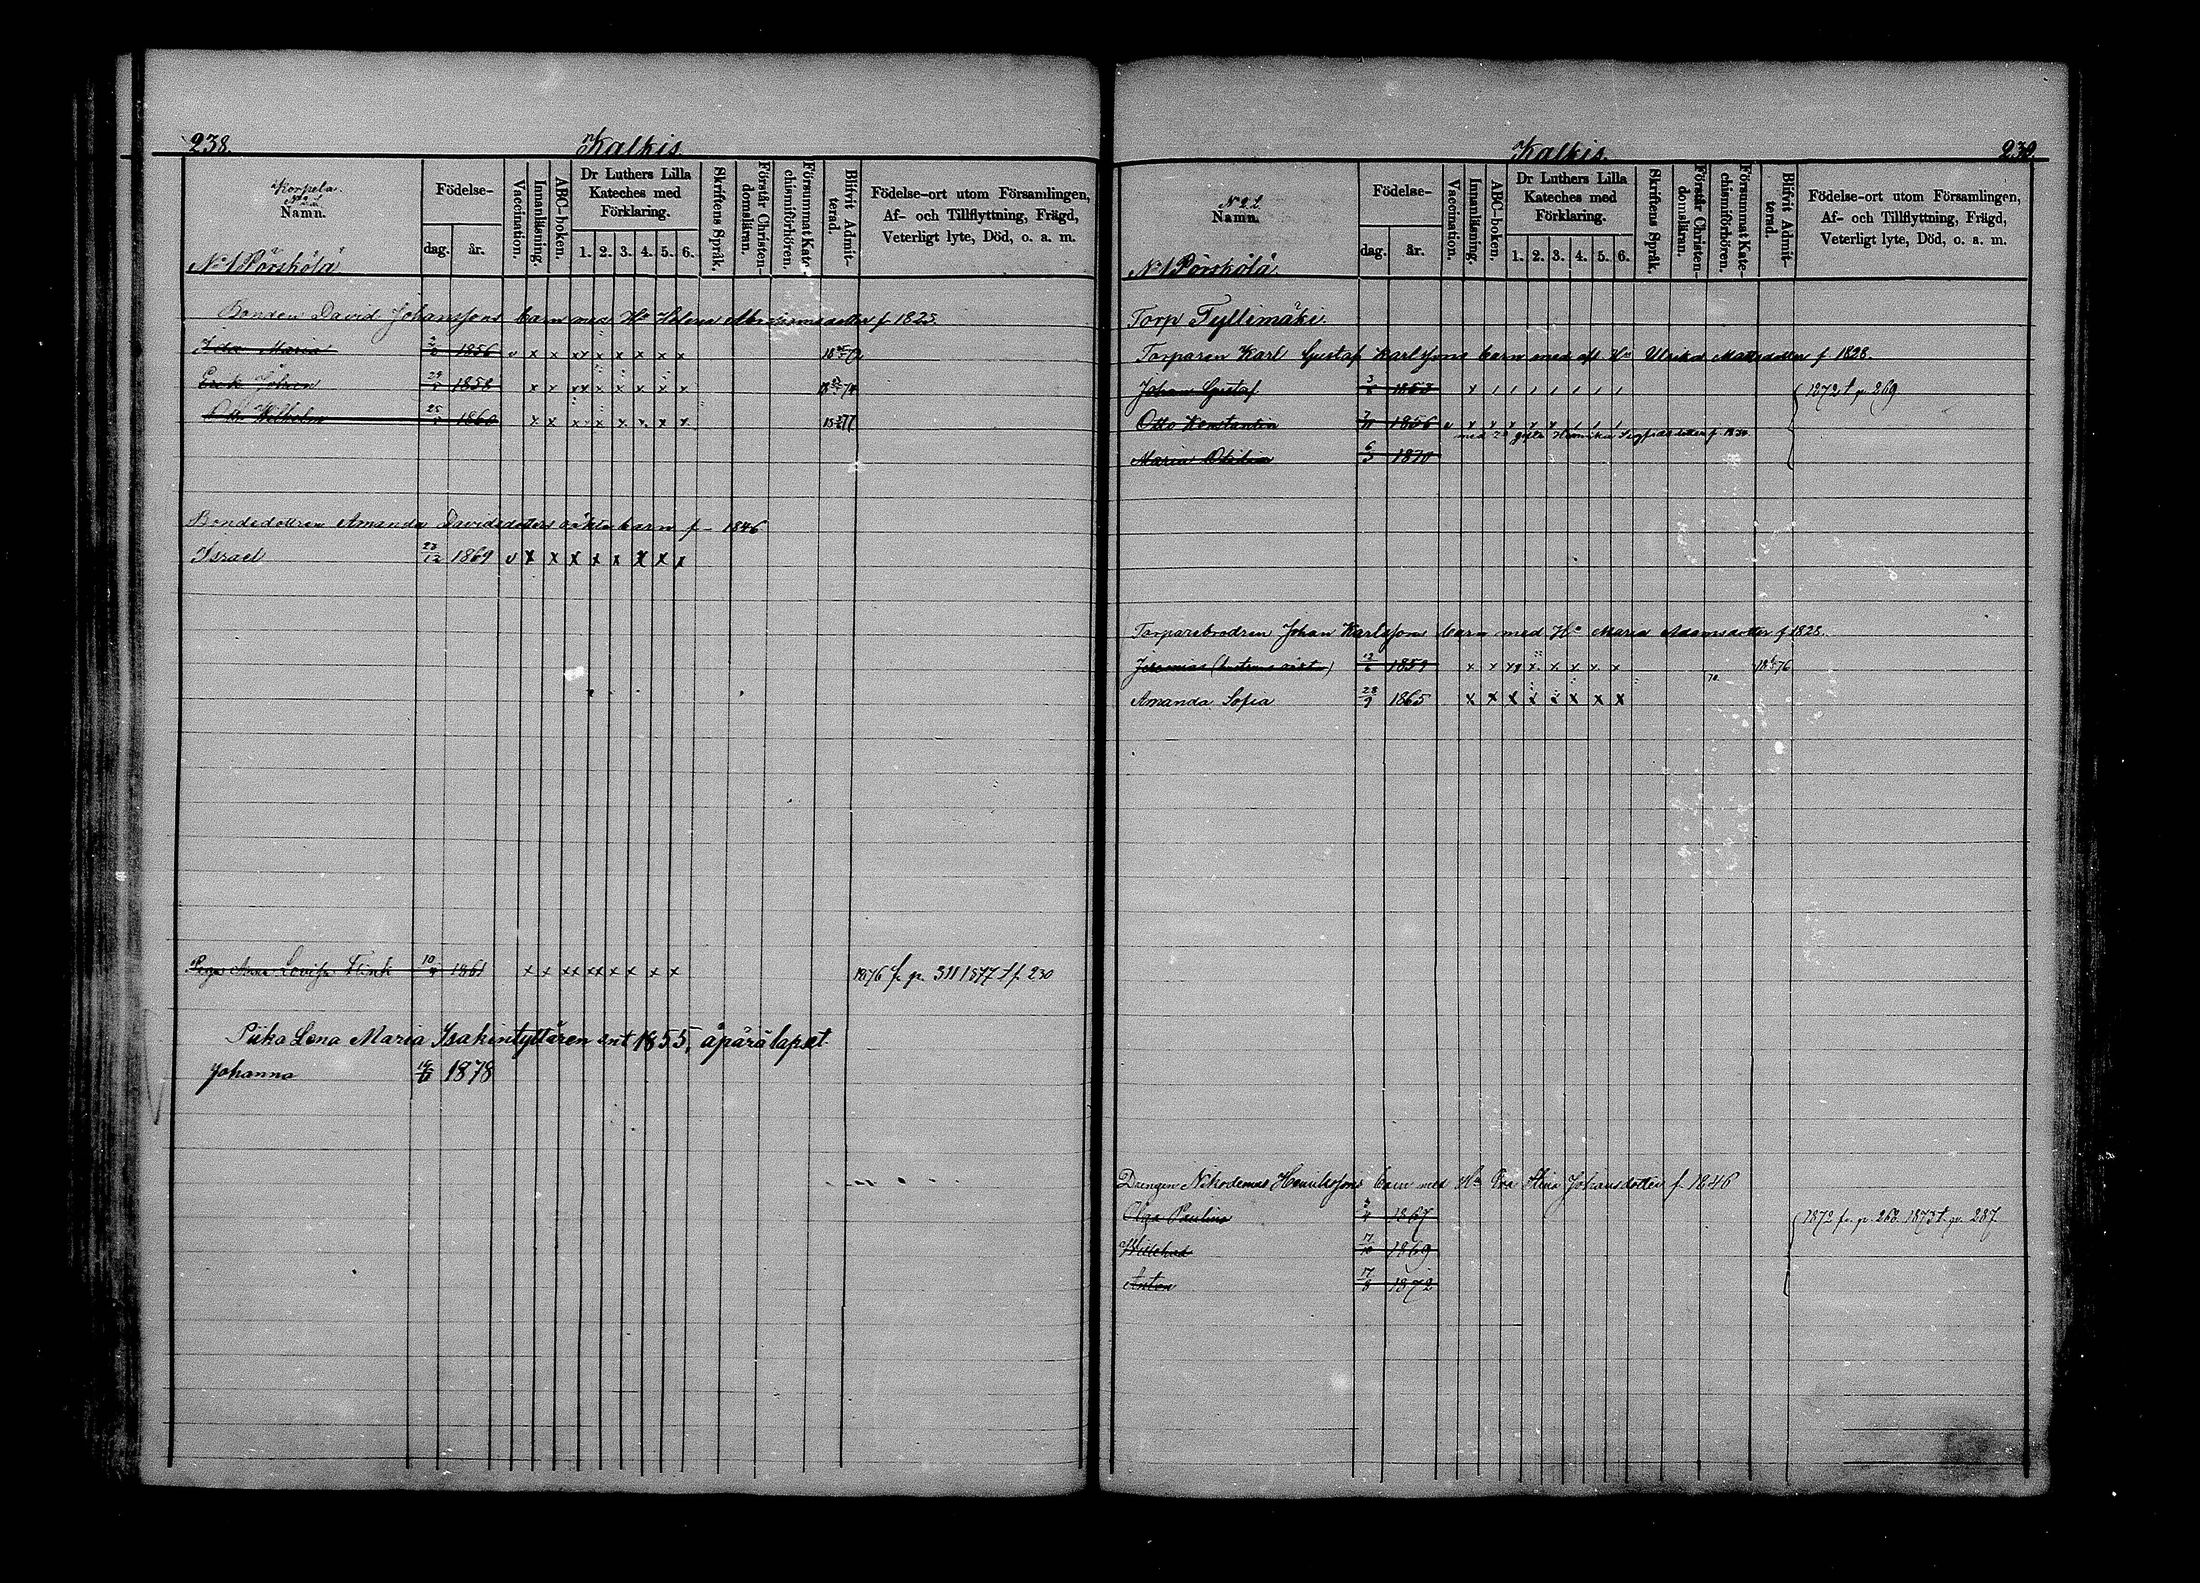 238.
Kalkis.
Korpela.
Namn.
Födelse-
dag.
år.
Vaccination.
Innanläsning.
ABC-boken.
Dr Luthers Lilla
Kateches med
Förklaring.
1. 2. 3. 4. 5. 6.
Skriftens Språk.
Förstår Christen-
domsläran.
Försummat Kate-
chismiförhören.
Blifvit Admit-
terad.
Födelse-ort utom Församlingen,
Af- och Tillflyttning, Frägd,
Veterligt lyte, Död, o. a. m.
No 1 Pörskölä
Bonden David Johanssons barn med Hu Helena f 1825.
Ida Maria 1856 v x x xx x x x x x
Erik 1858 x x xx x x x x x
Wilhelm 1860 x x x x x x x x
Bondedottren Amanda Davidsdotters oäkta barn f- 1846
Israel 23/12 1869 v x x x x x x x x
Piga Anna Lovisa Flink 1861 x x xx xx x x x x 1876 fr p. 311 1877 t p. 230
Piika Lena Maria Isakintyttären snt 1855, äpärälapset
Johanna 1878
Kalkis.
239.
No 2 L
Namn.
Födelse-
dag.
år.
Vaccination.
Innanläsning.
ABC-boken.
Dr Luthers Lilla
Kateches med
Förklaring.
1. 2. 3. 4. 5. 6.
Skriftens Språk.
Förstår Christen-
domsläran.
Försummat Kate-
chismiförhören.
Blifvit Admit-
terad.
Födelse-ort utom Församlingen,
Af- och Tillflyttning, Frägd,
Veterligt lyte, Död, o. a. m.
No 1 Pörskölä
Torp Tyllimäki.
Torparen Karl Gustaf Karlssons barn med afl. Hu Ulrika Mattsdotter f 1828.
Johan Gustaf 1853 1872 t p 269
Otto Konstantin 1856
Maria Otilia 6/3 1870
Torparebrodren Johan Karlssons barn med Hu Maria Adamsdotter f 1828.
Jeremias 1859
Amanda Sofia 28/9 1865 x x x x x x x x
Drengen Nikodemus Henrikssons barn med Hu Eva Stina Johansdotter f 1846
Olga Paulina 1867 1872 fr. p. 268. 1873 t. p. 287.
Willehad 17/10 1869
Anton 17/8 1872